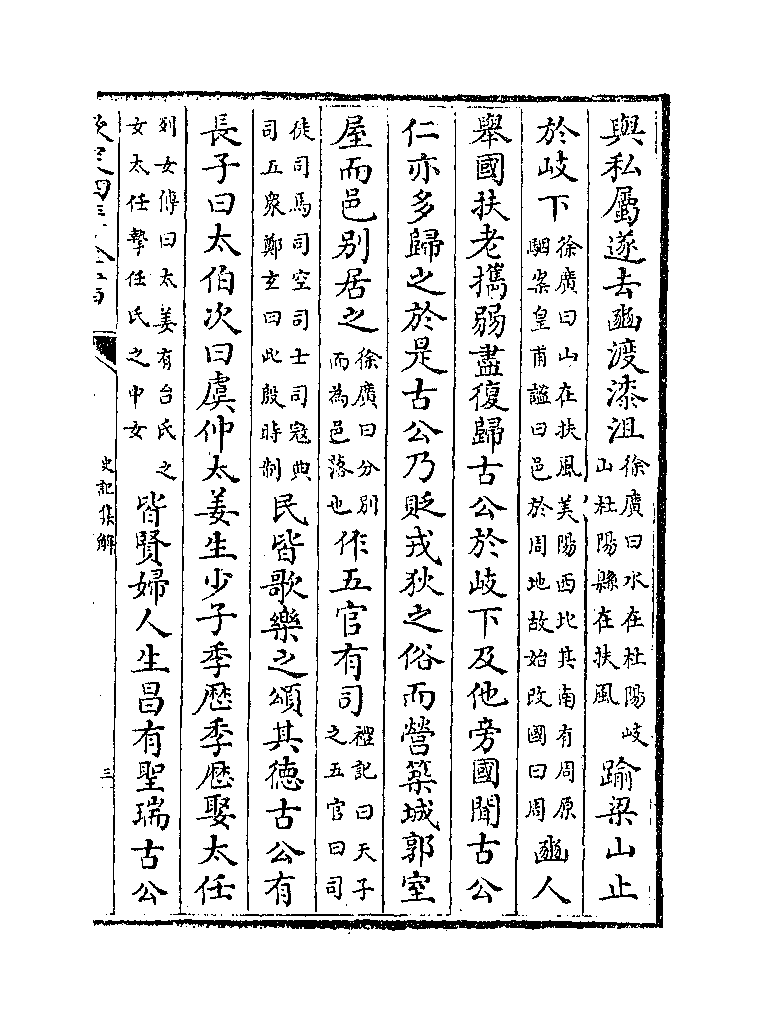 與私屬遂去豳渡漆沮徐廣曰水在杜陽岐山杜陽縣在扶風踰梁山止
於岐下徐廣曰山在扶風美陽西北其南有周原駰案皇甫謐曰邑於周地故始改國曰周豳人
舉國扶老攜弱盡復歸古公於岐下及他旁國聞古公
仁亦多歸之於是古公乃貶戎狄之俗而營築城郭室
屋而邑别居之徐廣曰分别而為邑落也作五官有司禮記曰天子之五官曰司
徒司馬司空司士司寇典司五衆鄭玄曰此殷時制民皆歌樂之頌其德古公有
長子曰太伯次曰虞仲太姜生少子季歴季歴娶太任
列女傳曰太姜有台氏之女太任摯任氏之中女皆賢婦人生昌有聖瑞古公
史記集解
三